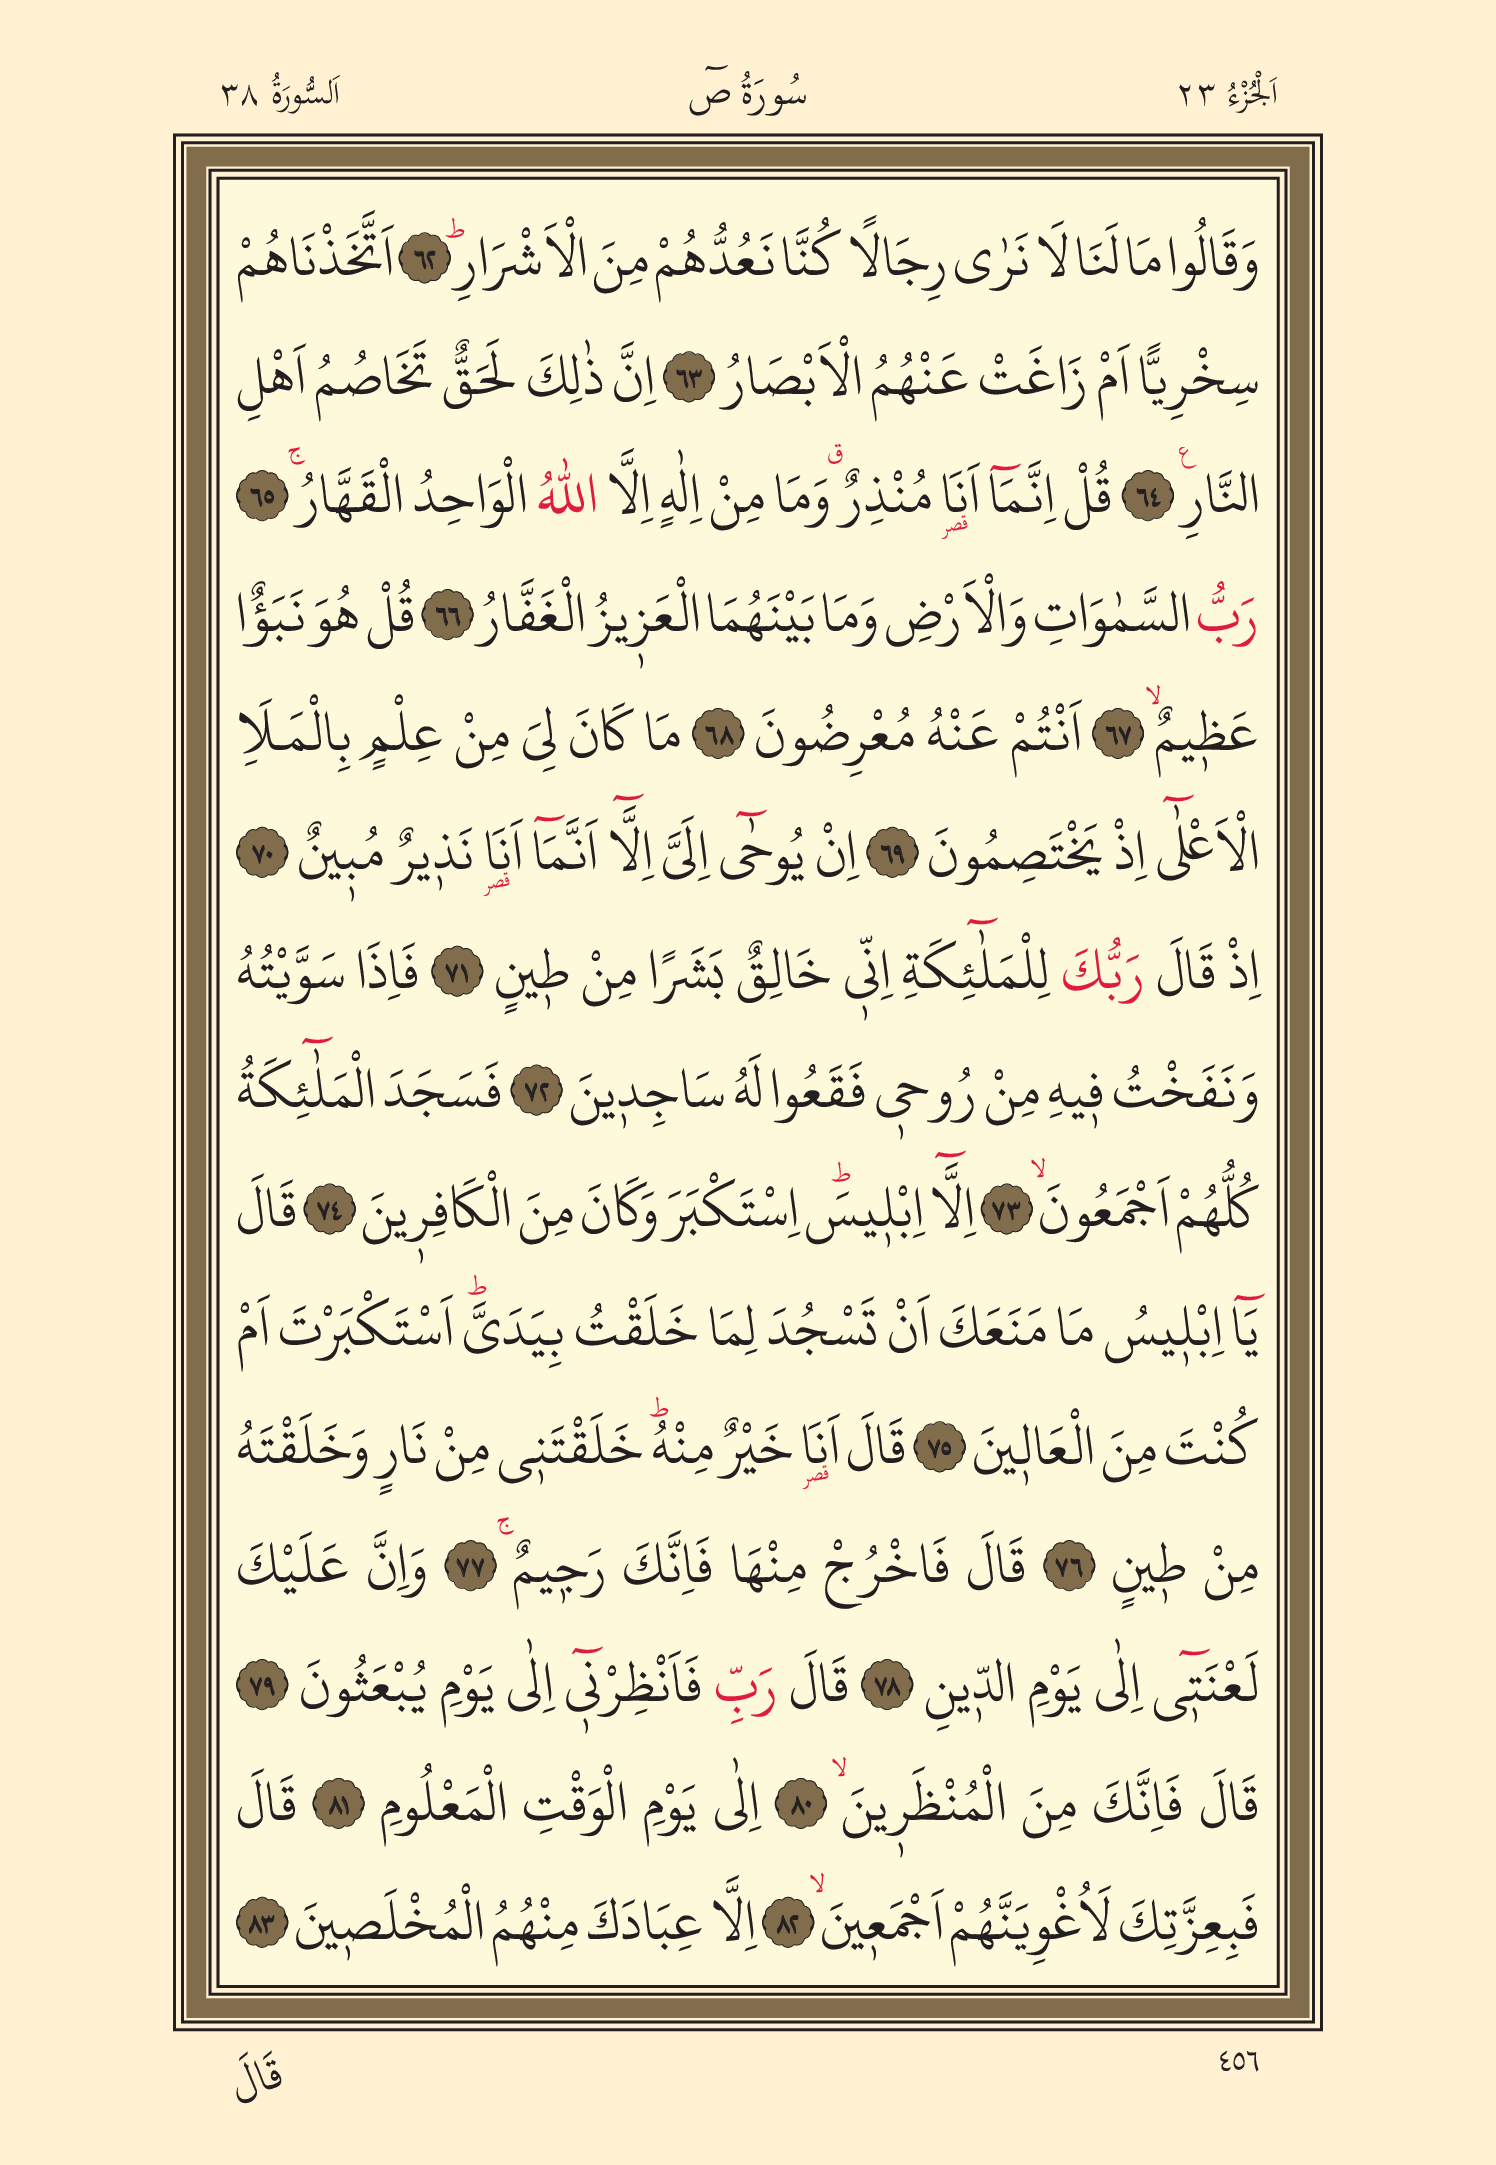 اَلْجُزْءُ ٢٣
سُورَةُ صٓ
اَلسُّورَةُ ٣٨
وَقَالُوا مَا لَنَا لَا نَرٰى رِجَالًا كُنَّا نَعُدُّهُمْ مِنَ الْاَشْرَارِ ؕ ٦٢ اَتَّخَذْنَاهُمْ
سِخْرِيًّا اَمْ زَاغَتْ عَنْهُمُ الْاَبْصَارُ ٦٣ اِنَّ ذٰلِكَ لَحَقٌّ تَخَاصُمُ اَهْلِ
النَّارِ ع ٦٤ قُلْ اِنَّمَٓا اَنَا قصر مُنْذِرٌ ق وَمَا مِنْ اِلٰهٍ اِلَّا اللّٰهُ الْوَاحِدُ الْقَهَّارُ ۚ ٦٥
رَبُّ السَّمٰوَاتِ وَالْاَرْضِ وَمَا بَيْنَهُمَا الْعَزٖيزُ الْغَفَّارُ ٦٦ قُلْ هُوَ نَبَؤٌا
عَظٖيمٌ ۙ ٦٧ اَنْتُمْ عَنْهُ مُعْرِضُونَ ٦٨ مَا كَانَ لِيَ مِنْ عِلْمٍ بِالْمَلَاِ
الْاَعْلٰٓى اِذْ يَخْتَصِمُونَ ٦٩ اِنْ يُوحٰٓى اِلَيَّ اِلَّٓا اَنَّمَٓا اَنَا قصر نَذٖيرٌ مُبٖينٌ ٧٠
اِذْ قَالَ رَبُّكَ لِلْمَلٰٓئِكَةِ اِنّٖي خَالِقٌ بَشَرًا مِنْ طٖينٍ ٧١ فَاِذَا سَوَّيْتُهُ
وَنَفَخْتُ فٖيهِ مِنْ رُوحٖي فَقَعُوا لَهُ سَاجِدٖينَ ٧٢ فَسَجَدَ الْمَلٰٓئِكَةُ
كُلُّهُمْ اَجْمَعُونَ ۙ ٧٣ اِلَّٓا اِبْلٖيسَ ؕ اِسْتَكْبَرَ وَكَانَ مِنَ الْكَافِرٖينَ ٧٤ قَالَ
يَٓا اِبْلٖيسُ مَا مَنَعَكَ اَنْ تَسْجُدَ لِمَا خَلَقْتُ بِيَدَيَّ ؕ اَسْتَكْبَرْتَ اَمْ
كُنْتَ مِنَ الْعَالٖينَ ٧٥ قَالَ اَنَا قصر خَيْرٌ مِنْهُ ؕ خَلَقْتَنٖي مِنْ نَارٍ وَخَلَقْتَهُ
مِنْ طٖينٍ ٧٦ قَالَ فَاخْرُجْ مِنْهَا فَاِنَّكَ رَجٖيمٌ ۚ ٧٧ وَاِنَّ عَلَيْكَ
لَعْنَتٖٓي اِلٰى يَوْمِ الدّٖينِ ٧٨ قَالَ رَبِّ فَاَنْظِرْنٖٓي اِلٰى يَوْمِ يُبْعَثُونَ ٧٩
قَالَ فَاِنَّكَ مِنَ الْمُنْظَرٖينَ ۙ ٨٠ اِلٰى يَوْمِ الْوَقْتِ الْمَعْلُومِ ٨١ قَالَ
فَبِعِزَّتِكَ لَاُغْوِيَنَّهُمْ اَجْمَعٖينَ ۙ ٨٢ اِلَّا عِبَادَكَ مِنْهُمُ الْمُخْلَصٖينَ ٨٣
٤٥٦
قَالَ